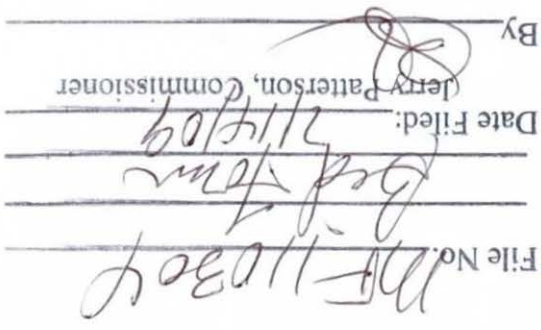 File No. MF110304
Bid Form
Date Filed:
Jerry Patterson, Commissioner
By